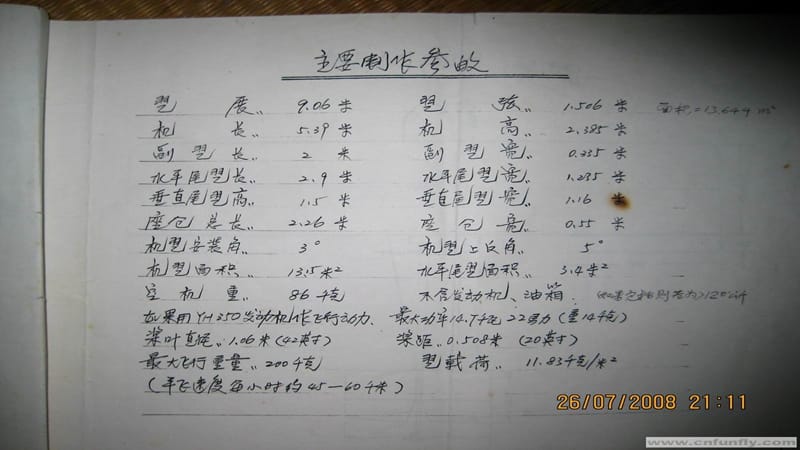 主要制作参数
翼 展,, 9.06 米 翼 弦,, 1.506 米 面积=13.644 m²
机 长,, 5.39 米 机 高,, 2.385 米
副翼长,, 2 米 副翼宽,, 0.235 米
水平尾翼长,, 2.9 米 水平尾翼宽,, 1.235 米
垂直尾翼高,, 1.5 米 垂直尾翼宽,, 1.16 米
座仓总长,, 2.26 米 座仓宽,, 0.55 米
机翼安装角,, 3° 机翼上反角,, 5°
机翼面积,, 13.5米² 水平尾翼面积,, 3.4米²
空机重,, 86千克 不含发动机、油箱.
如果用YH350发动机作飞行动力. 最大功率14.7千瓦22马力(重14千克)
桨叶直径,, 1.06米(42英寸) 桨距,, 0.508米 (20英寸)
最大飞行重量,, 200千克 翼载荷,, 11.83千克/米²
(平飞速度每小时约45—60千米)
26/07/2008 21:11
www.cnfunfly.com